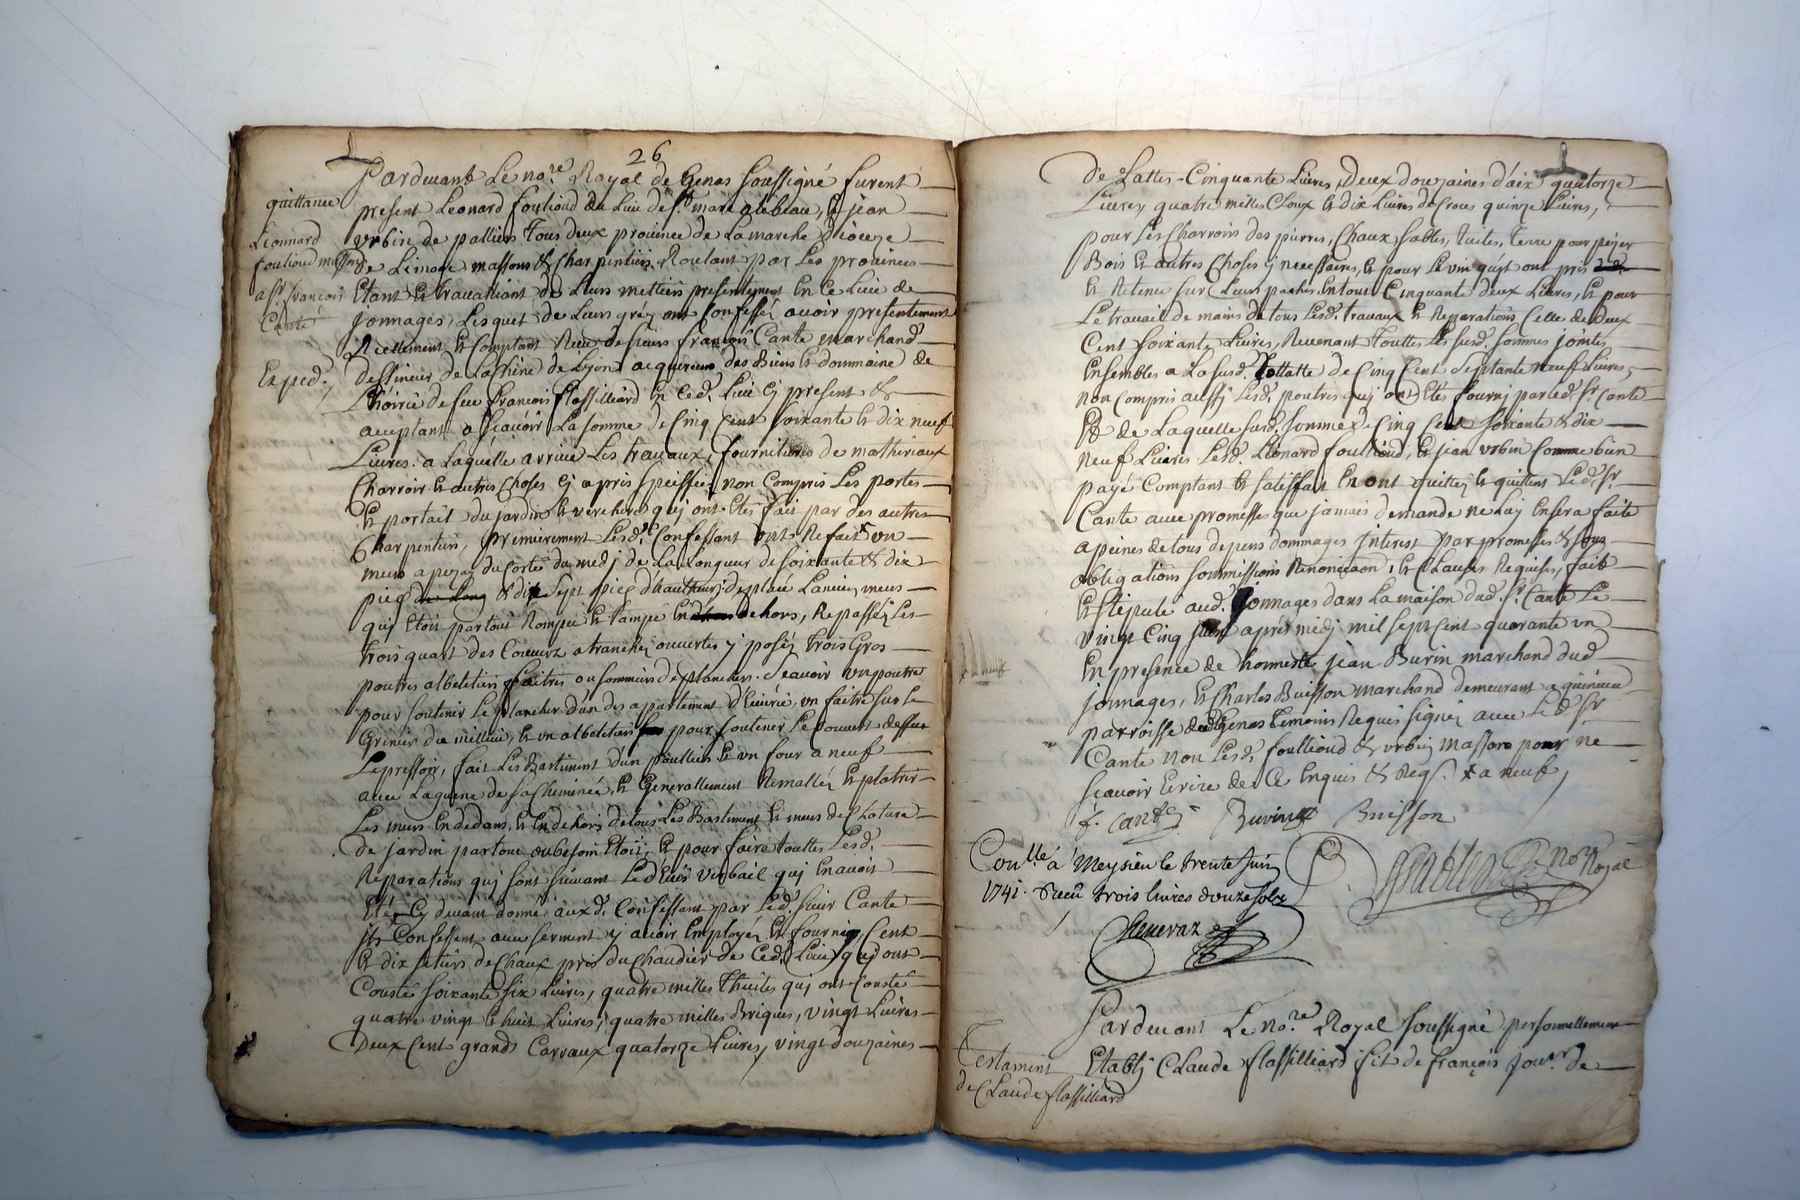 26
Pardevant Le no.re Royal de Genas Soussigné furent
quittance
present Leonard foulioud du Lieu de St. marc alebeau, & jean
Léonnard
vrbin de palliers tous deux province de La marche dioceze
foulioud masson
de Limoge massons & Charpentiers Roulant par Les provinces
a Sr. françois
Etant & travailliant de Leurs mettiers presentement En Ce Lieu de
Canté
jonnages, Lesquel de Leurs gréz ont Confesséz avoir presentement
Réellement & Comptant Reçu de Sieurs françois Cante marchand
Exped.
dessineur de La ville de Lyon acquereur des Biens & dommaine de
L'hoirie de feu françois flassilliard En Ced. Lieu Cy present &
acceptant a Scavoir La somme de Cinq Cent Soixante & dix neuf
Livres a Laquelle arrive Les travaux, fournitures de matheriaux
Charroir & autres Choses Cy apres Speiffiée non Compris Les portes
& portail du jardin & verchere quj ont Etés fait par des autres
Charpentiers, premierement Lesd. Confessant ont Refait un
meur a pizay du Cottés du medj de La Longueur de soixante & dix
pieds & dix Sept pieds d'hautheur; deplacé L'ancien meur
quj Etoit partout Rompu & Rampé En dehors, Repasséz Les
trois quart des Couverz a tranchéz ouvertes y poséz trois Gros
poutres albeletiers faitres ou sommiers de planchers. Scavoir un poutre
pour soutenir Le plancher d'un des apartement d'Ecuirie, un faitre sur Le
Grenier du millieu, & un albeletiers pour soutenir Le Couvert dessus
Le pressoir, fait Les Bastiment d'un poullier & un four a neuf
avec Laquene de sa Cheminée, & Generallement Remalléz & platrir
Les murs En dedans, & En dehors de tous Les Bastiment & murs de Cloture
de jardin partout ou besoin Etoit, & pour faire touttes Lesd.
Réparations quj sont suivant Led. verbail quj En avoit
Eté Cy devant donné auxd. Confessant par Led. Sieur Cante
Ils Confessent avec serment y avoir Employéz & fournis, Cent
& dix setiers de Chaux pris du Chaudier de Ced. Lieu quj ont
Coustés soixante six Livres, quatre milles Thuiles quj ont Coustés
quatre vingt & huit Livres, quatre milles Briques, vingt Livres
Deux Cent grands Carraux quatorze Livres, vingt douzaines
de Lattes Cinquante Livres, Deux douzaines d'aix quatorze
Livres, quatre milles Cloux & dix Livres de Croes quinze Livres,
pour Les Charroirs des pierres, Chaux sables, Tuiles, Terre pour pizer
Bois & autres Choses Cy necessaires, & pour Le vin quils ont pris
& Retenu sur Leurs paches En tout Cinquante deux Livres, & pour
Le travail de mains de tous Lesd. travaux & Reparations Celle de Deux
Cent soixante Livres, Revenant Touttes Les susd. sommes jointes
Ensembles a La susd. Tottalle de Cinq Cent Septante neuf Livres,
non Compris aussy Lesd. poutres quj ont Etés fournj par Led. Sr. Cante
de Laquelle susd. Somme de Cinq Cent Soixante & dix
neuf Livres Lesd. Léonard foulioud, & jean vrbin Comme bien
payé Comptant & satisfait En ont quittéz & quittent Led. Sr.
Cante avec promesses que jamais demande ne Luy En sera faite
a peines de tous depens dommages jnterest par promesses & sous
obligations sommissions Renonciaon & Clauses Requises, fait
& stipulé aud. jonnages dans La maison dud. Sr. Cante Le
vingt Cinq juin après midj mil sept Cent quarante un
En presence de honneste jean Burin marchand dud
jonnages, & Charles Buisson marchand demeurant a quincieu
parroisse dud Genas temoins Requis signéz avec Led. Sr.
Cante non Lesd. foullioud & vrbin massons pour ne
scavoir Ecrire de Ce Enquis & Reqs. x a neuf,
f. Canté Burin Buisson
Conllé a Meysieu le trente Juin
no.re Royal
1741. Reçu trois livres douze sols
Chenevaz
Pardevant Le No.re Royal Soussigné personnellement
Testament
Etablj Claude flassilliard fils de françois jour. de
de Claude flassilliard